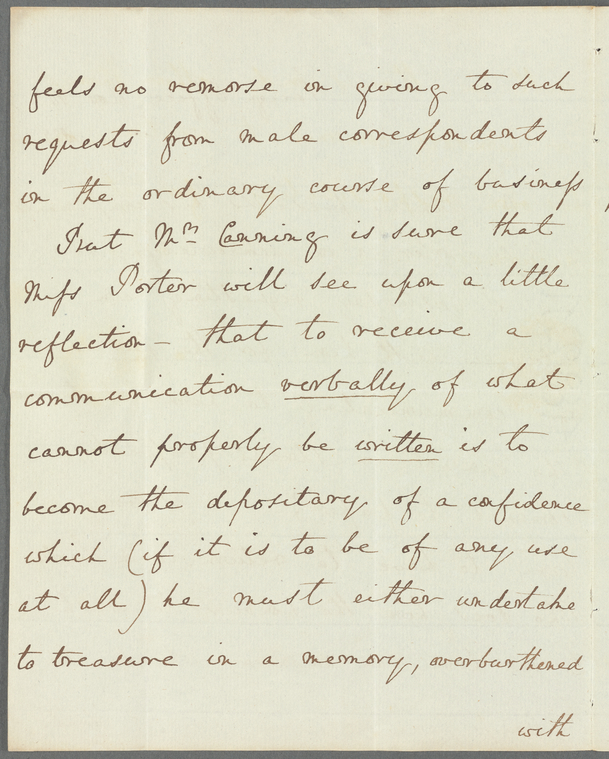 feels no remorse in giving to such
requests from male correspondents
in the ordinary course of business
But Mr. Canning is sure that
Miss Porter will see upon a little
reflection – that to receive a
communication verbally of what
cannot properly be written is to
become the depositary of a confidence
which (if it is to be of any use
at all) he must either undertake
to treasure in a memory, overburthened
with